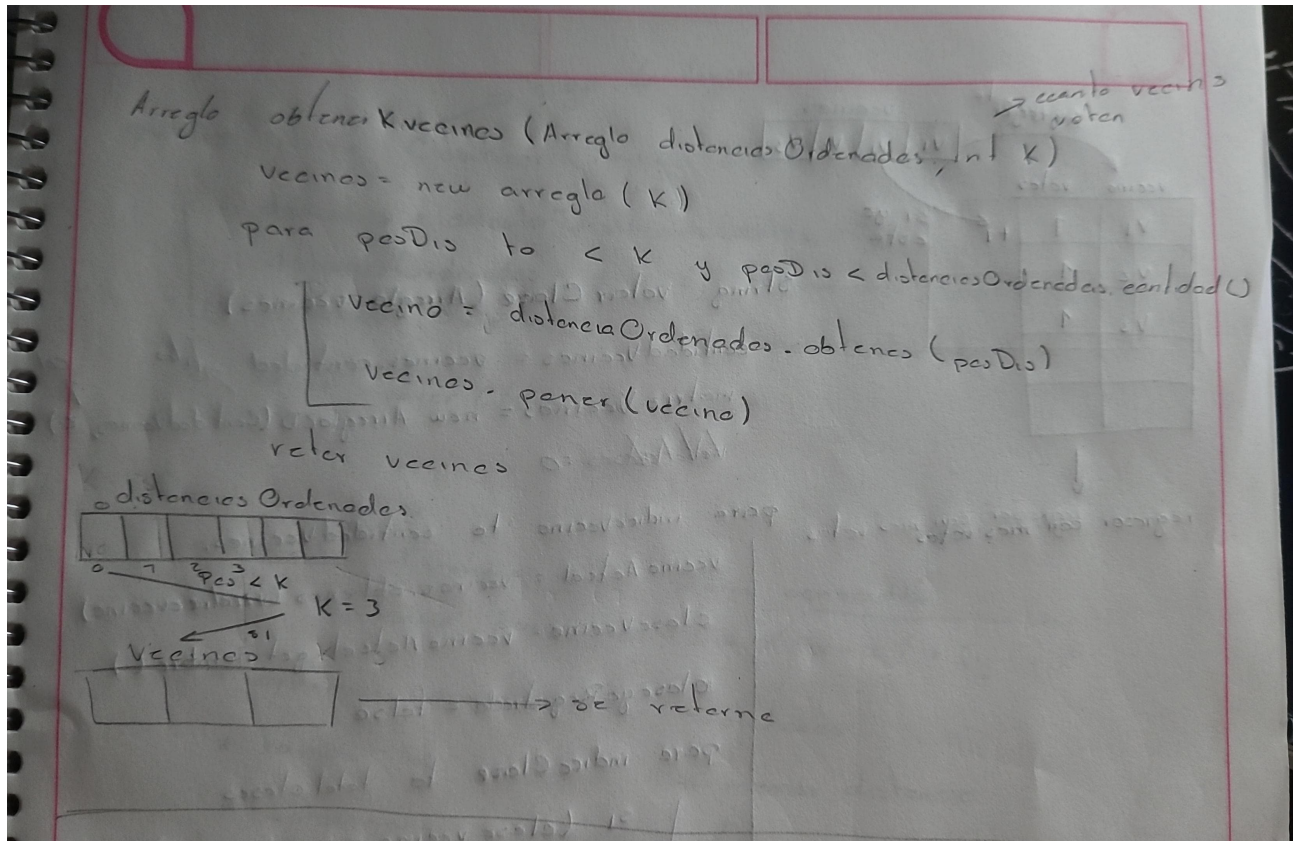 cuanto vecino
voten
Arreglo obtener K vecinos (Arreglo distancias Ordenadas, Int K)
vecinos = new arreglo (K)
para posDis to < K y posDis < distanciasOrdenadas.cantidad()
vecino = distancia Ordenadas. obtener (posDis)
vecinos. poner (vecino)
retor vecinos
distancias Ordenadas
0 1 2 3
pos < K
K = 3
si
Vecinos
se retorna